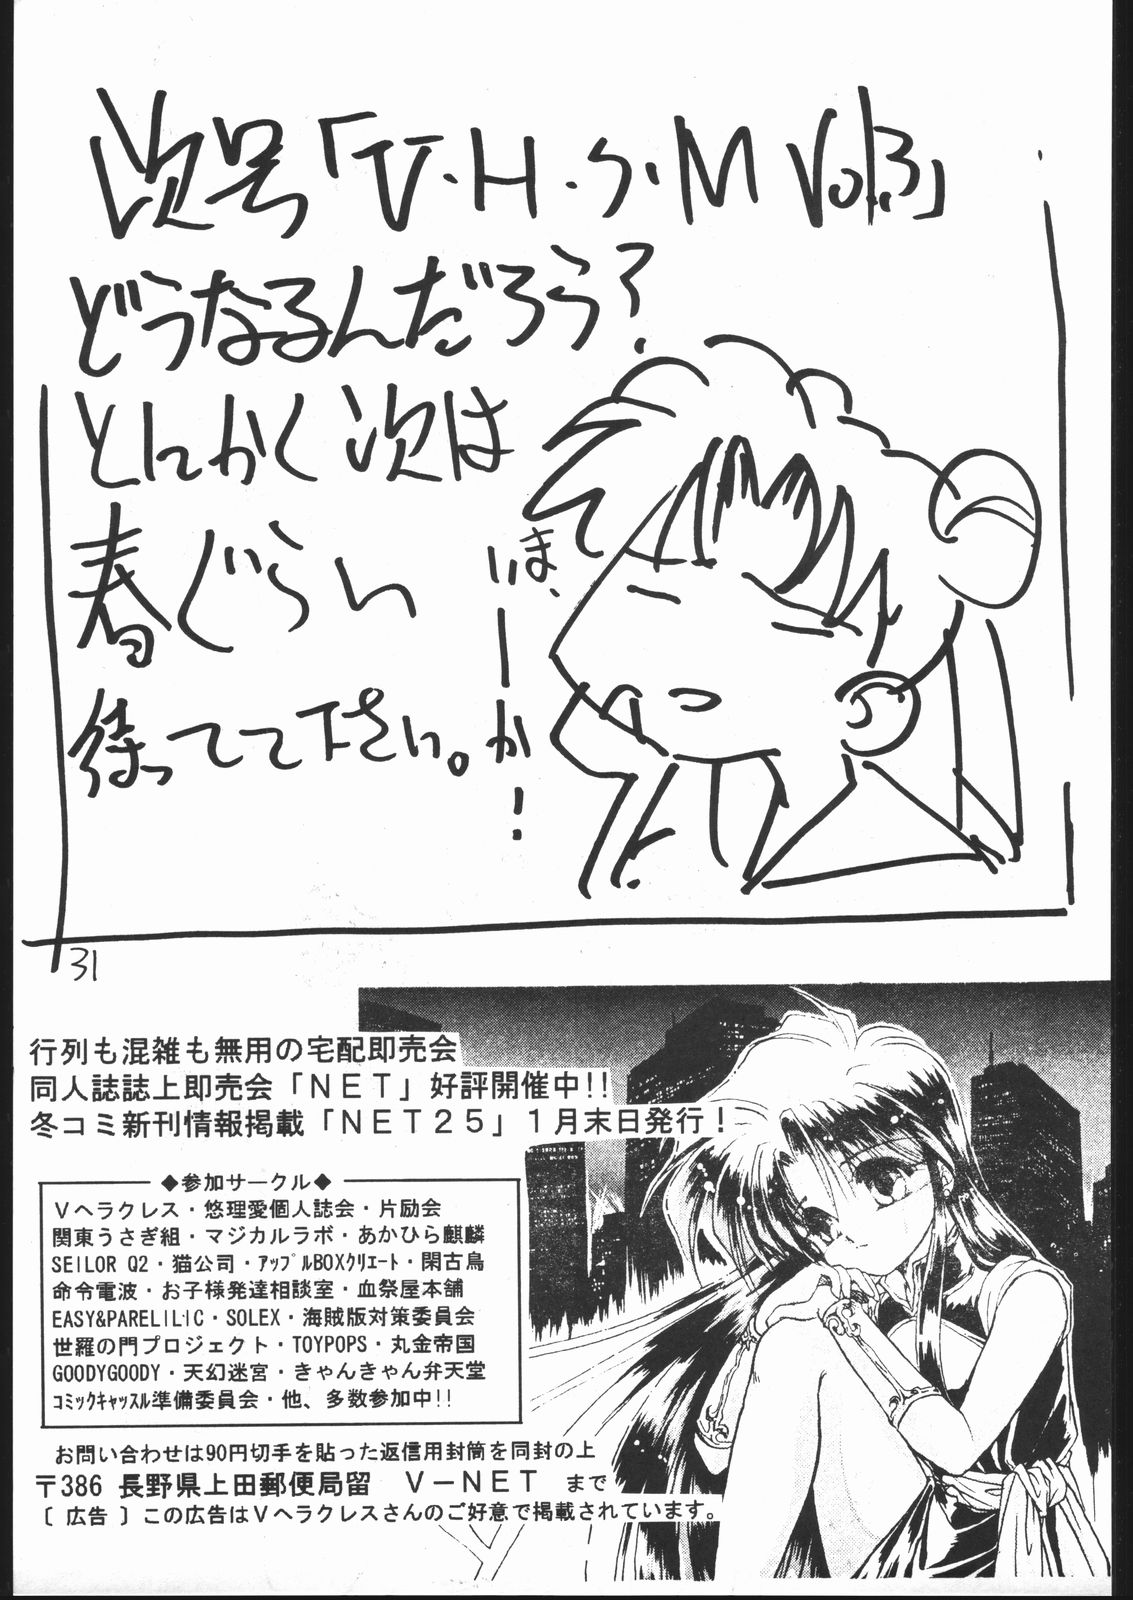 次号「V・H・S・M Vol.3」
どうなるんだろう?
とにかく次は
春ぐらい
待ってて下さい。
ま、いーか!
31
行列も混雑も無用の宅配即売会
同人誌誌上即売会「NET」好評開催中!!
冬コミ新刊情報掲載「NET25」1月末日発行!
◆参加サークル◆
Vヘラクレス・悠理愛個人誌会・片励会
関東うさぎ組・マジカルラボ・あかひら麒麟
SEILOR Q2・猫公司・アップルBOXクリエート・閑古鳥
命令電波・お子様発達相談室・血祭屋本舗
EASY&PARELILIC・SOLEX・海賊版対策委員会
世羅の門プロジェクト・TOYPOPS・丸金帝国
GOODYGOODY・天幻迷宮・きゃんきゃん弁天堂
コミックキャッスル準備委員会・他、多数参加中!!
お問い合わせは90円切手を貼った返信用封筒を同封の上
〒386 長野県上田郵便局留 V−NET まで
〔 広告 〕この広告はVヘラクレスさんのご好意で掲載されています。